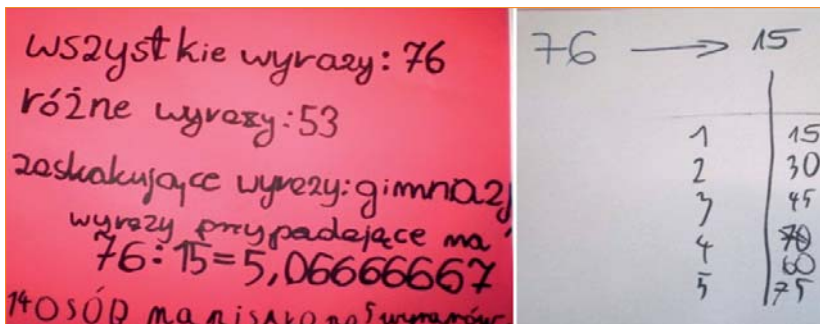 wszystkie wyrazy: 76
różne wyrazy: 53
zaskakujące wyrazy: gimnazj
wyrazy przypadające na
76:15=5,06666667
14 OSÓB
76 → 15
1 15
2 30
3 45
4 70 60
5 75